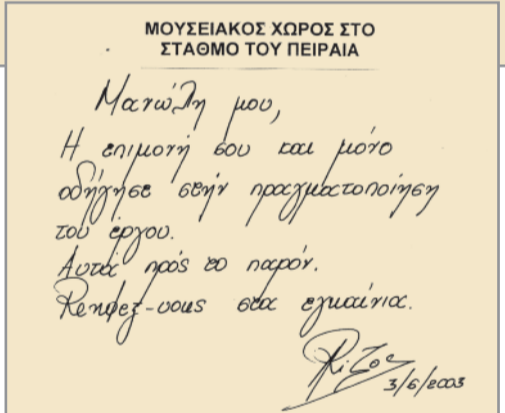 ΜΟΥΣΕΙΑΚΟΣ ΧΩΡΟΣ ΣΤΟ
ΣΤΑΘΜΟ ΤΟΥ ΠΕΙΡΑΙΑ
Μανώλη μου,
Η επιμονή σου και μόνο
οδήγησε στήν πραγματοποίηση
του έργου.
Αυτά πρός το παρόν.
Rendez-vous στα εγκαίνια.
Ρίζος
3/6/2003